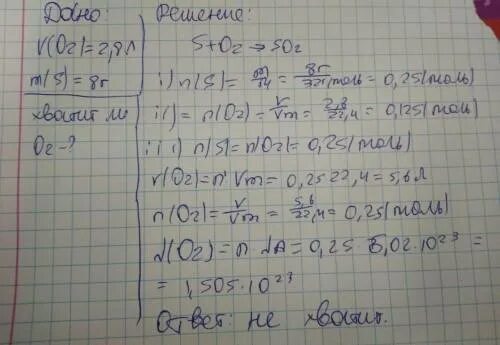 Дано:
V(O₂)=2,8л
m(S)=8г
хватит ли
O₂-?
Решение:
S+O₂→SO₂
i) n(S)=m/M=8г/32г/моль=0,25(моль)
ii)= n(O₂)=V/Vm=2,8/22,4=0,125(моль)
iii) n(S)=n(O₂)=0,25(моль)
V(O₂)=n·Vm=0,25·22,4=5,6л
n(O₂)=V/Vm=5,6/22,4=0,25(моль)
N(O₂)=n·NA=0,25·6,02·10²³=
=1,505·10²³
Ответ: не хватит.